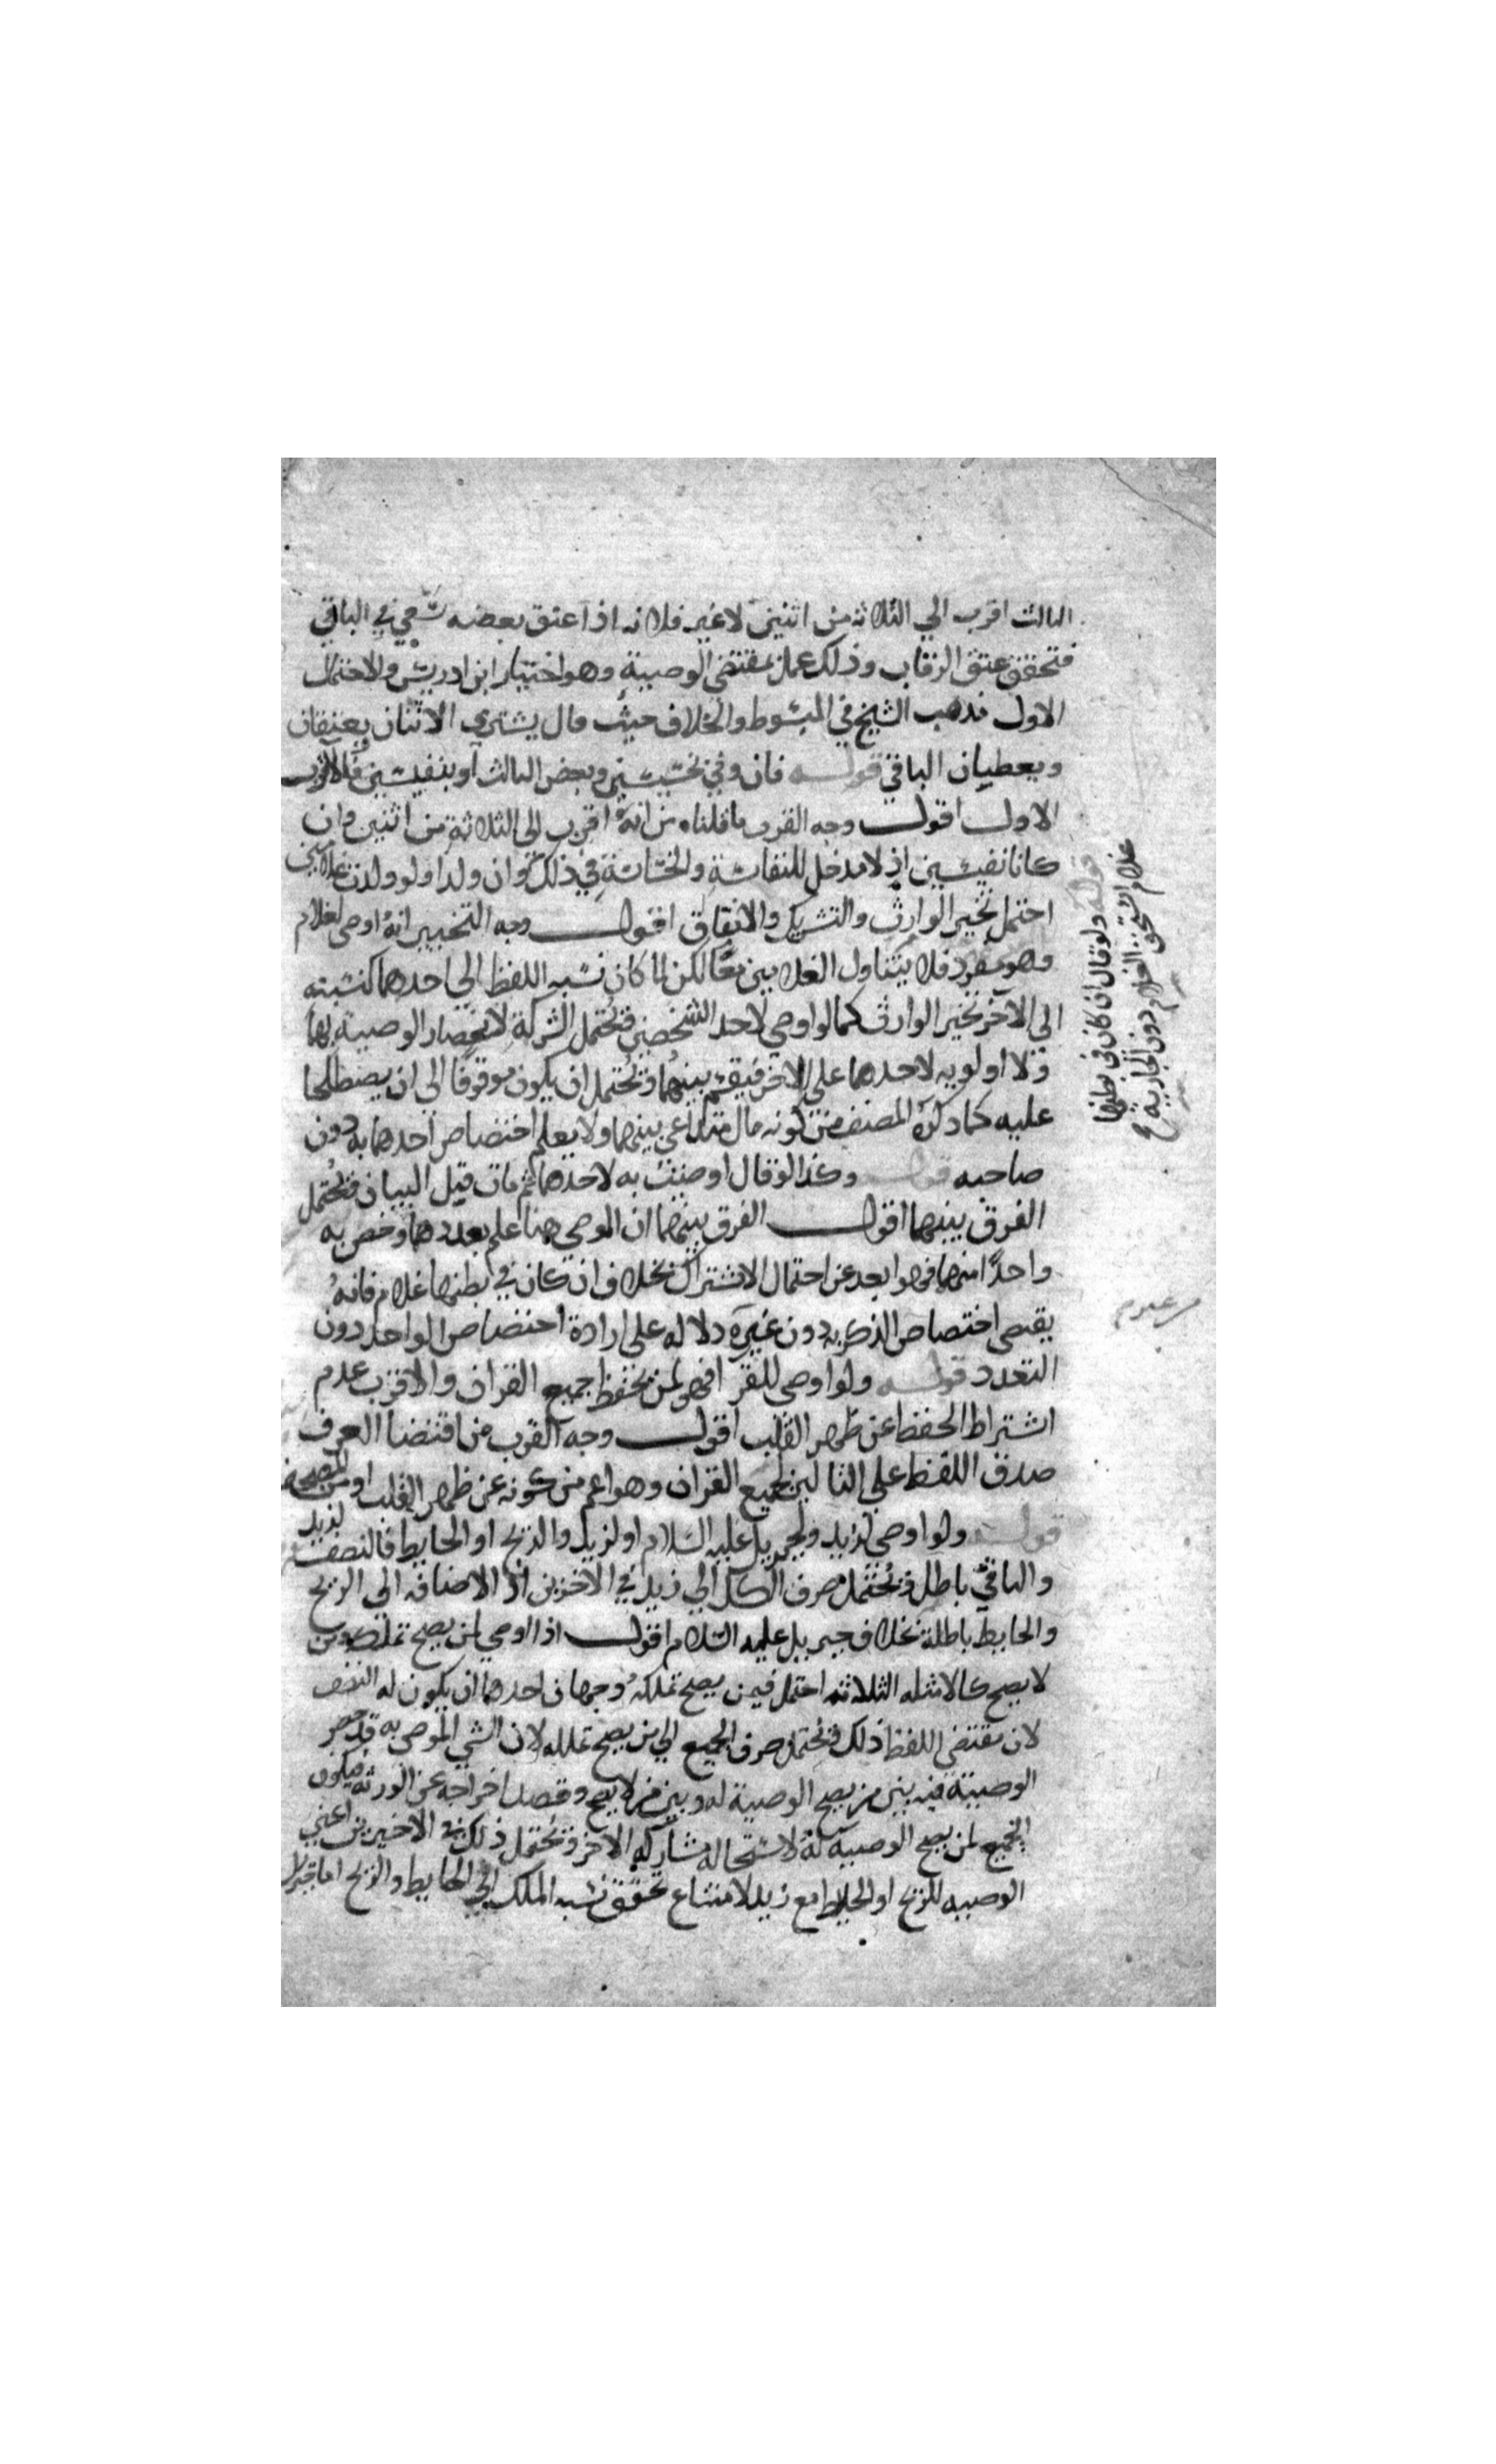 الثالث اقرب الي الثلاثة من اثنين لا غير فلانه اذا اعتق بعضه سعي في الباقي
فتحقق عتق الرقاب وذلك عملا بمقتضي الوصية وهو اختيار ابن ادريس والاحتمال
الاول مذهب الشيخ في المبسوط والخلاف حيث قال يشتري الاثنان ويعتقان
ويعطيان الباقي قوله فان وفي بخسيسين وبعض الثالث او بنفيسين فالاقرب
الاول اقول وجه القرب ما قلناه من انه اقرب الي الثلاثة من اثنين وان
كانا نفيسين اذ لا مدخل للنفاسة والخساسة في ذلك وان ولدا ولو ولدت غلامين
احتمل تخير الوارث والتشريك والايقاف اقول وجه التخيير انه اوصي لغلام
وهو مفرد فلا يتناول الغلامين معا لكن لما كان نسبه اللفظ الي احدهما كنسبته
الي الآخر تخير الوارث كما لو اوصي لاحد الشخصين فيحتمل الشركة لانحصار الوصية بهما
ولا اولويه لاحدهما علي الاخر فيقسم بينهما ويحتمل ان يكون موقوفا الي ان يصطلحا
عليه كما ذكره المصنف من كونه مال متداعي بينهما ولا يعلم اختصاص احدهما به دون
صاحبه قوله وكذا لو قال اوصيت به لاحدهما ثم مات قبل البيان فيحتمل
الفرق بينهما اقول الفرق بينهما ان الموصي هنا علم بعددهما وخص به
واحدًا منهما فهو ابعد عن احتمال الاشتراك بخلاف ان كان في بطنها غلام فانه
يقتضي اختصاص الذكر به دون غيره دلاله علي ارادة اختصاص الواحد دون
التعدد قوله ولو اوصي للقرا فهو لمن يحفظ جميع القران والاقرب عدم
اشتراط الحفظ عن ظهر القلب اقول وجه القرب من اقتضا العرف
صدق اللفظ علي التالين لجميع القران وهو اعم من كونه عن ظهر القلب او من المصحف
قوله ولو اوصي لزيد ولجبريل عليه السلام او لزيد والريح او الحايط فالنصف لزيد
والباقي باطل ويحتمل صرف الكل الي زيد في الاخرين اذ الاضافه الي الريح
والحايط باطلة بخلاف جبريل عليه السلام اقول اذا اوصي لمن يصح تملكه ومن
لا يصح كالامثله الثلاثه احتمل فيمن يصح تملكه وجهان احدهما ان يكون له النصف
لان مقتضي اللفظ ذلك ويحتمل صرف الجميع الي من يصح تملكه لان الشي الموصي به قد حصر
الوصية فيه بين من يصح الوصية له وبين من لا يصح وقصد اخراجه عن الورثه فيكون
الجميع لمن يصح الوصيه له لاستحاله مشاركه الاخر ويحتمل ذلك في الاخيرين اعني
الوصيه للريح او الحايط مع زيد لامتناع تحقق نسبه الملك الي الحايط والريح اما جبريل
قوله ولو قال ان كان في بطنها
غلام استحق الغلام دون الجارية